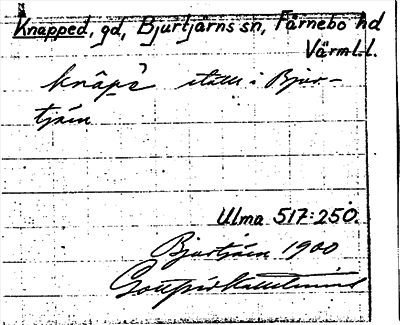 Knapped, gd, Bjurtjärns sn, Färnebo hd
Värml.l.
knăpè ställe i Bjur-
tjärn
Ulma 517:250.
Bjurtjärn 1900
Gottfrid Kallstenius